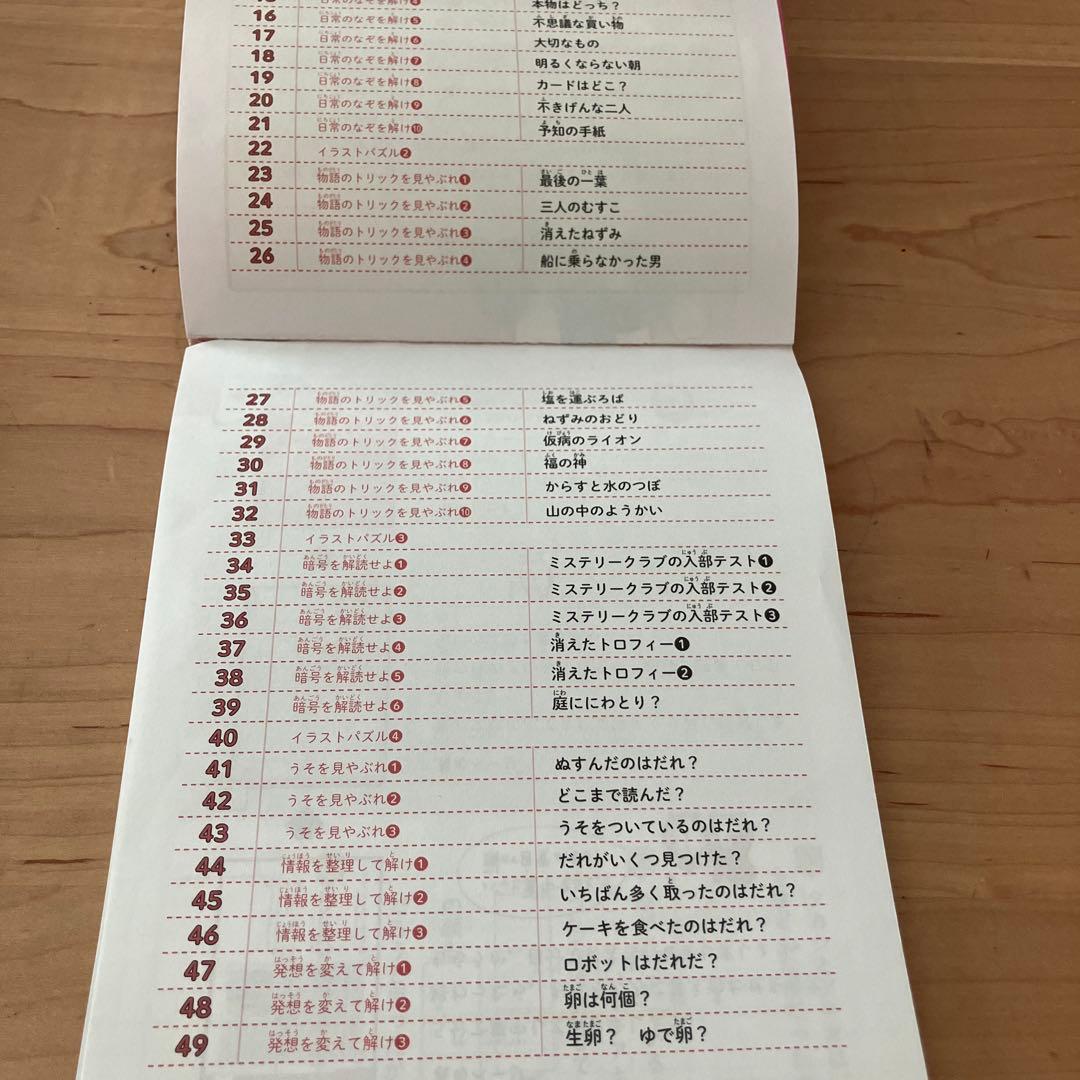 日常のなぞを解け❹ 本物はどっち？
16 日常のなぞを解け❺ 不思議な買い物
17 日常のなぞを解け❻ 大切なもの
18 日常のなぞを解け❼ 明るくならない朝
19 日常のなぞを解け❽ カードはどこ？
20 日常のなぞを解け❾ 不きげんな二人
21 日常のなぞを解け❿ 予知の手紙
22 イラストパズル❷
23 物語のトリックを見やぶれ❶ 最後の一葉
24 物語のトリックを見やぶれ❷ 三人のむすこ
25 物語のトリックを見やぶれ❸ 消えたねずみ
26 物語のトリックを見やぶれ❹ 船に乗らなかった男
27 物語のトリックを見やぶれ❺ 塩を運ぶろば
28 物語のトリックを見やぶれ❻ ねずみのおどり
29 物語のトリックを見やぶれ❼ 仮病のライオン
30 物語のトリックを見やぶれ❽ 福の神
31 物語のトリックを見やぶれ❾ からすと水のつぼ
32 物語のトリックを見やぶれ❿ 山の中のようかい
33 イラストパズル❸
34 暗号を解読せよ❶ ミステリークラブの入部テスト❶
35 暗号を解読せよ❷ ミステリークラブの入部テスト❷
36 暗号を解読せよ❸ ミステリークラブの入部テスト❸
37 暗号を解読せよ❹ 消えたトロフィー❶
38 暗号を解読せよ❺ 消えたトロフィー❷
39 暗号を解読せよ❻ 庭ににわとり？
40 イラストパズル❹
41 うそを見やぶれ❶ ぬすんだのはだれ？
42 うそを見やぶれ❷ どこまで読んだ？
43 うそを見やぶれ❸ うそをついているのはだれ？
44 情報を整理して解け❶ だれがいくつ見つけた？
45 情報を整理して解け❷ いちばん多く取ったのはだれ？
46 情報を整理して解け❸ ケーキを食べたのはだれ？
47 発想を変えて解け❶ ロボットはだれだ？
48 発想を変えて解け❷ 卵は何個？
49 発想を変えて解け❸ 生卵？ ゆで卵？